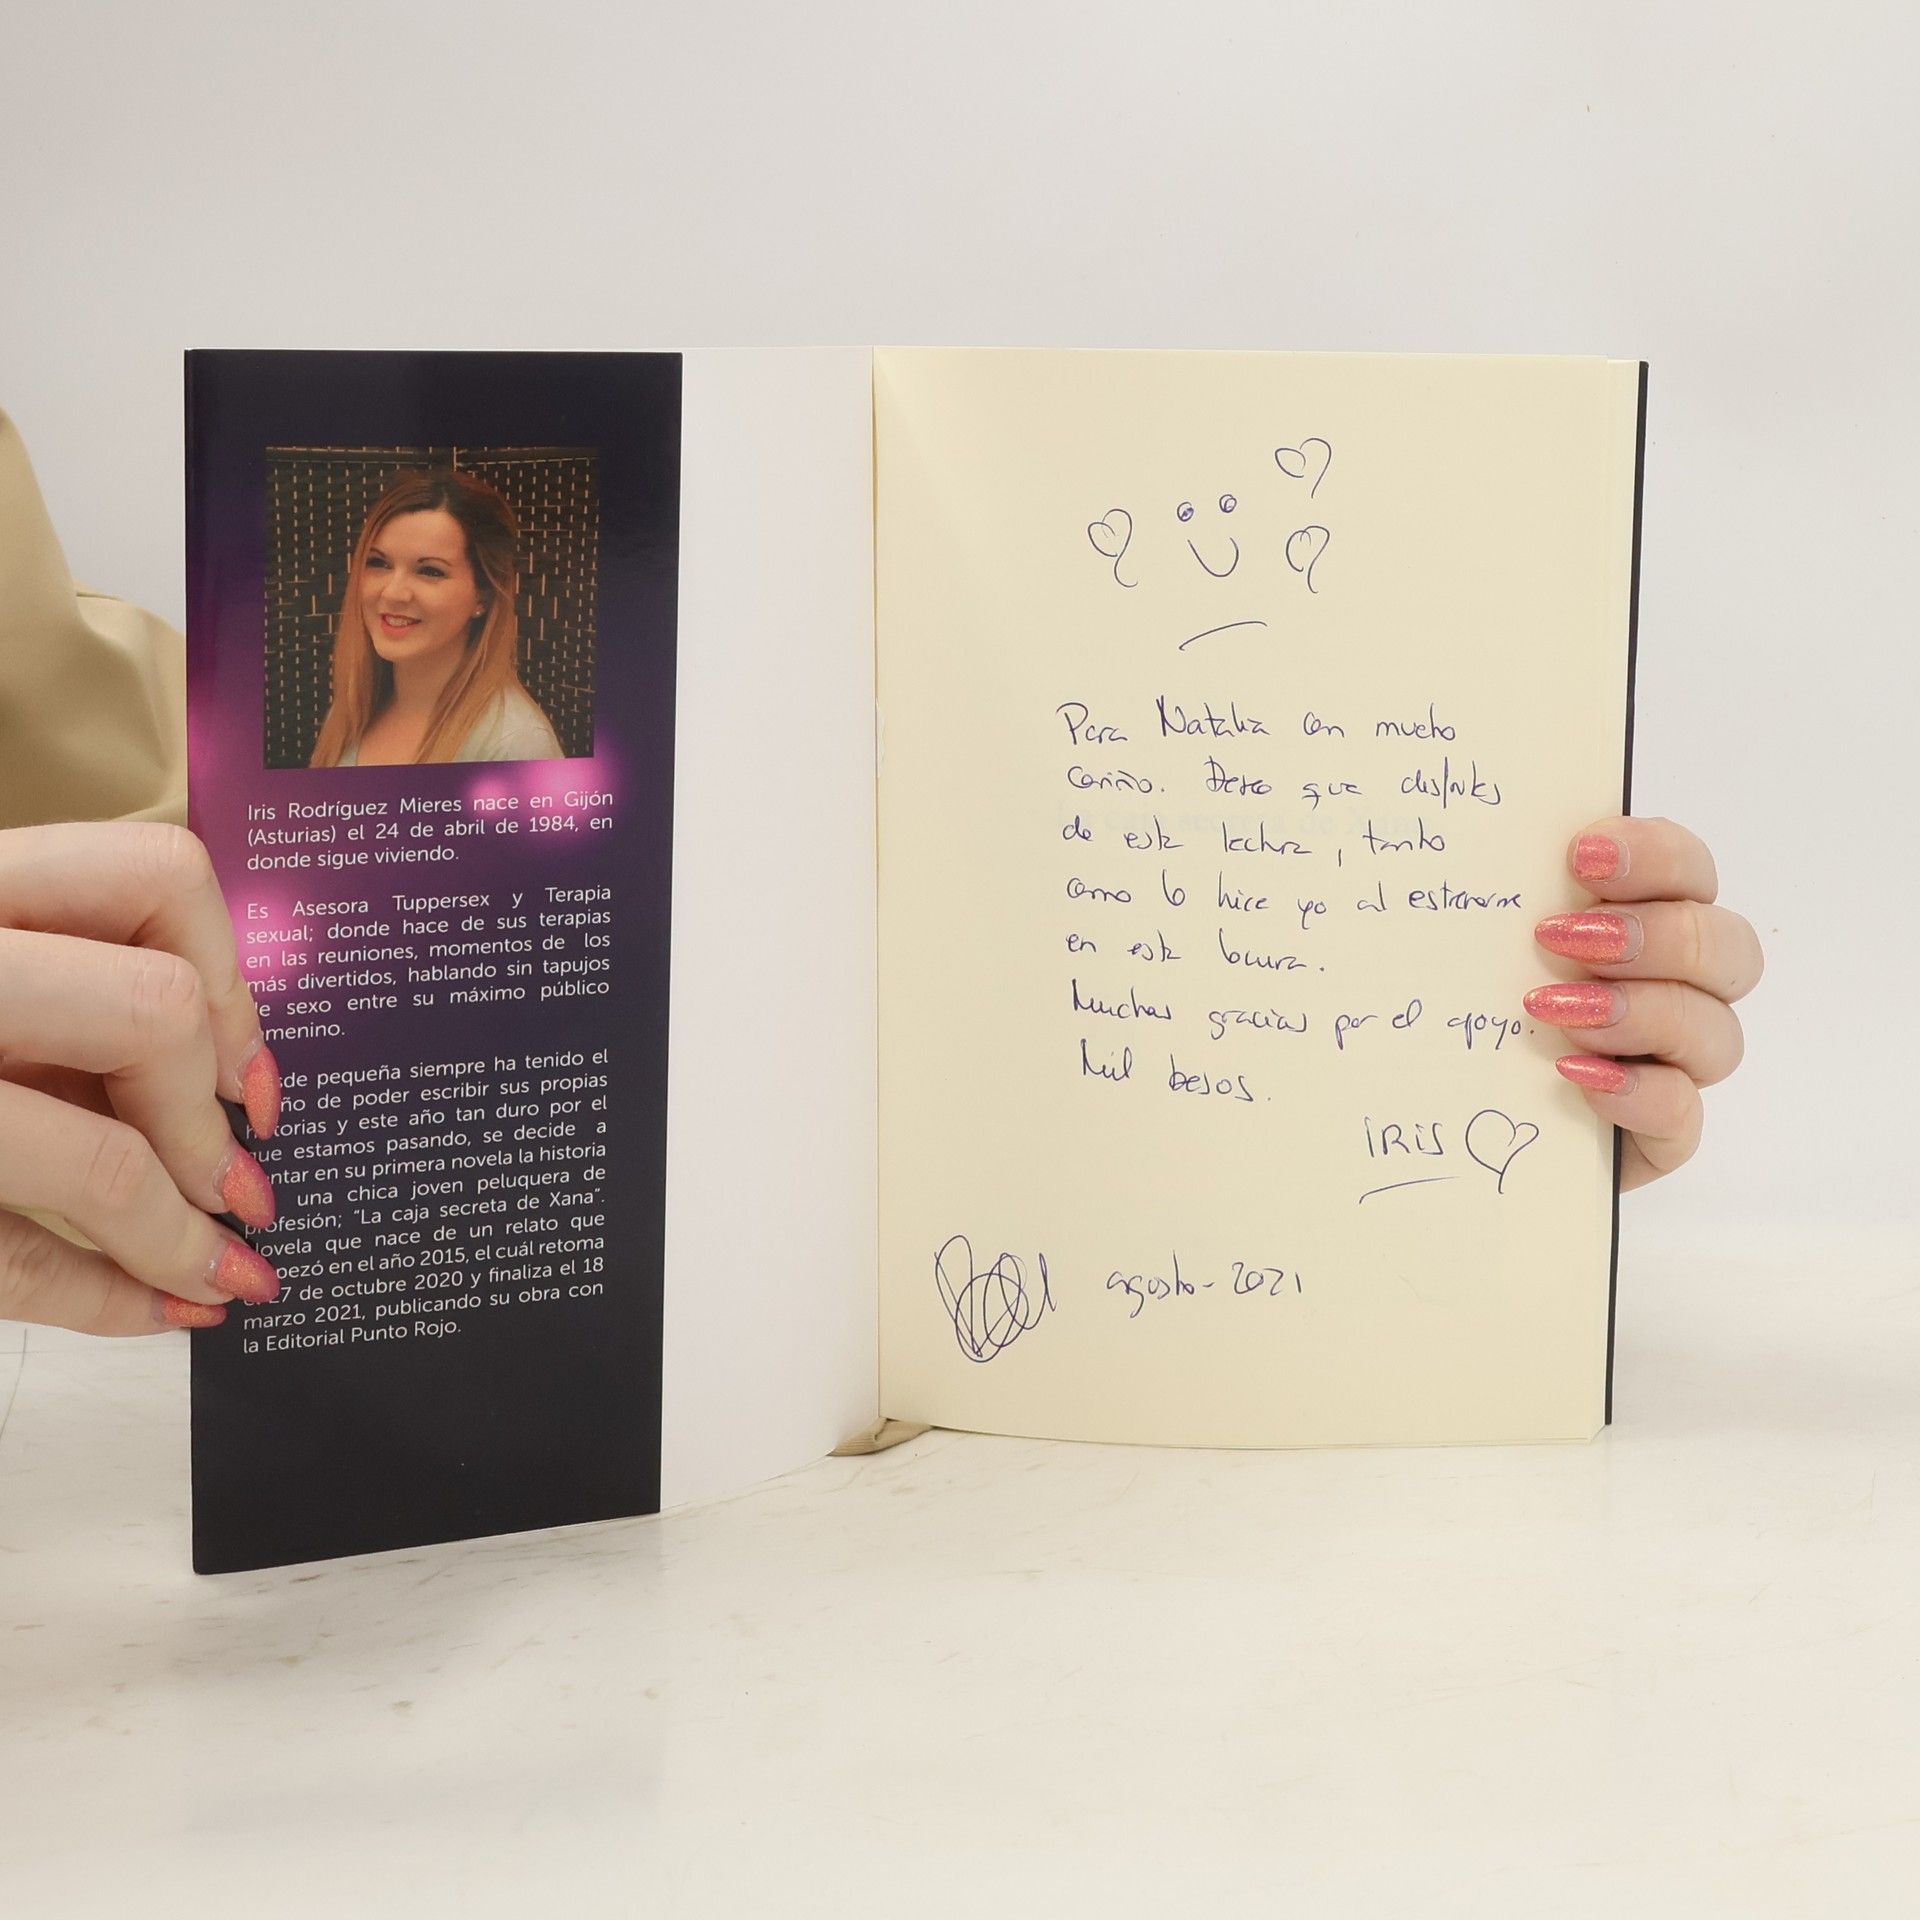 Iris Rodríguez Mieres nace en Gijón
(Asturias) el 24 de abril de 1984, en
donde sigue viviendo.
Es Asesora Tuppersex y Terapia
sexual; donde hace de sus terapias
en las reuniones, momentos de los
más divertidos, hablando sin tapujos
e sexo entre su máximo público
menino.
sde pequeña siempre ha tenido el
ño de poder escribir sus propias
torias y este año tan duro por el
ue estamos pasando, se decide a
ntar en su primera novela la historia
una chica joven peluquera de
profesión; "La caja secreta de Xana".
Novela que nace de un relato que
pezó en el año 2015, el cuál retoma
27 de octubre 2020 y finaliza el 18
marzo 2021, publicando su obra con
la Editorial Punto Rojo.
Para Natalia con mucho
cariño. Deseo que disfrutes
de esta lectura, tanto
como lo hice yo al estrenarme
en esta locura.
Muchas gracias por el apoyo.
Mil besos.
IRIS
agosto-2021